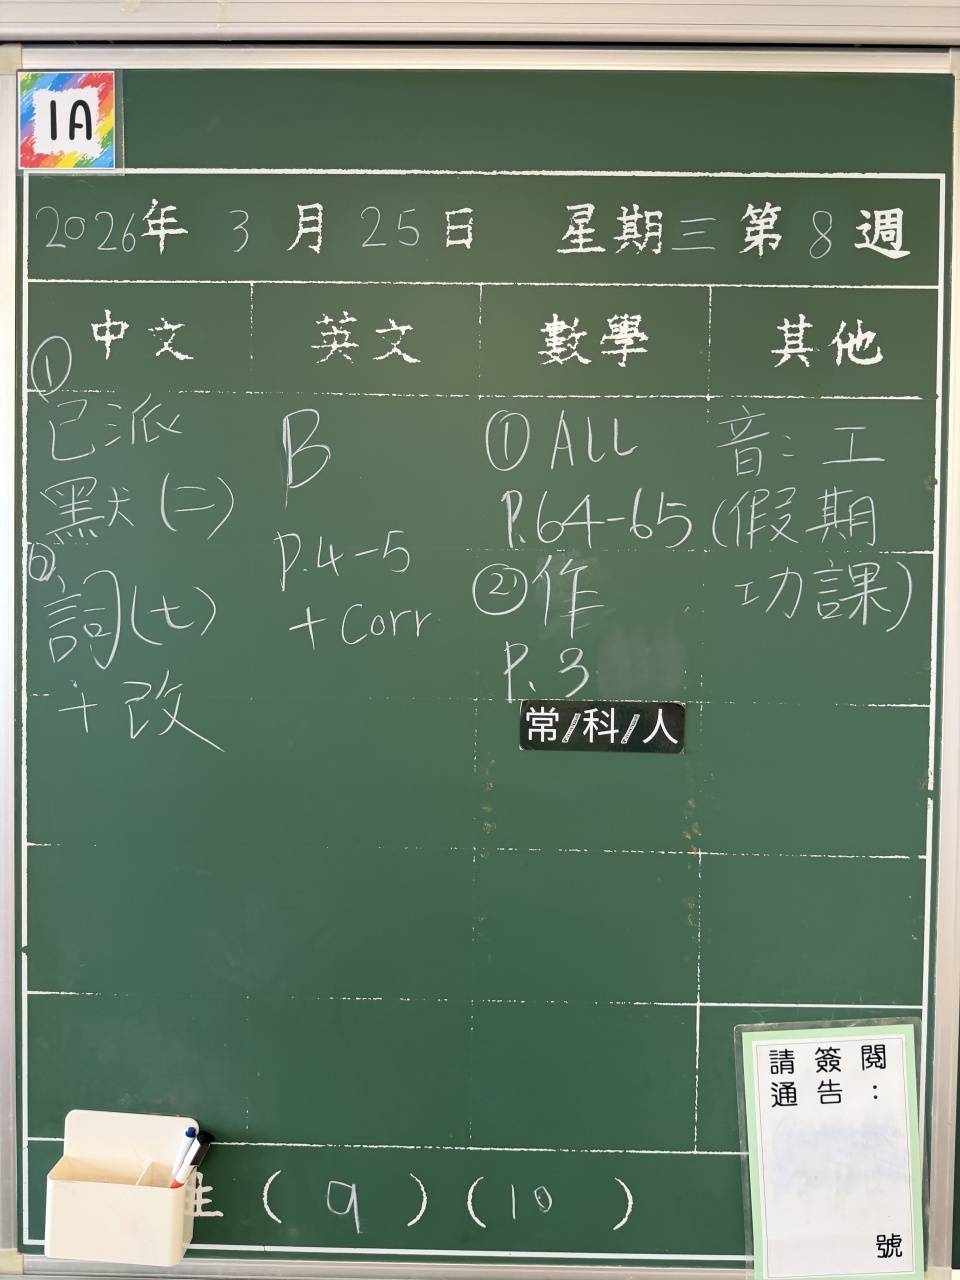 1A
2026年 3月 25日 星期三 第8週
中文 英文 數學 其他
①
已派
默(二)
②
詞(七)
+改
B
P.4-5
+ Corr
① ALL
P.64-65
② 作
P.3
常/科/人
音：工
(假期
功課)
請簽閱
通告：
號
生 ( 9 ) ( 10 )